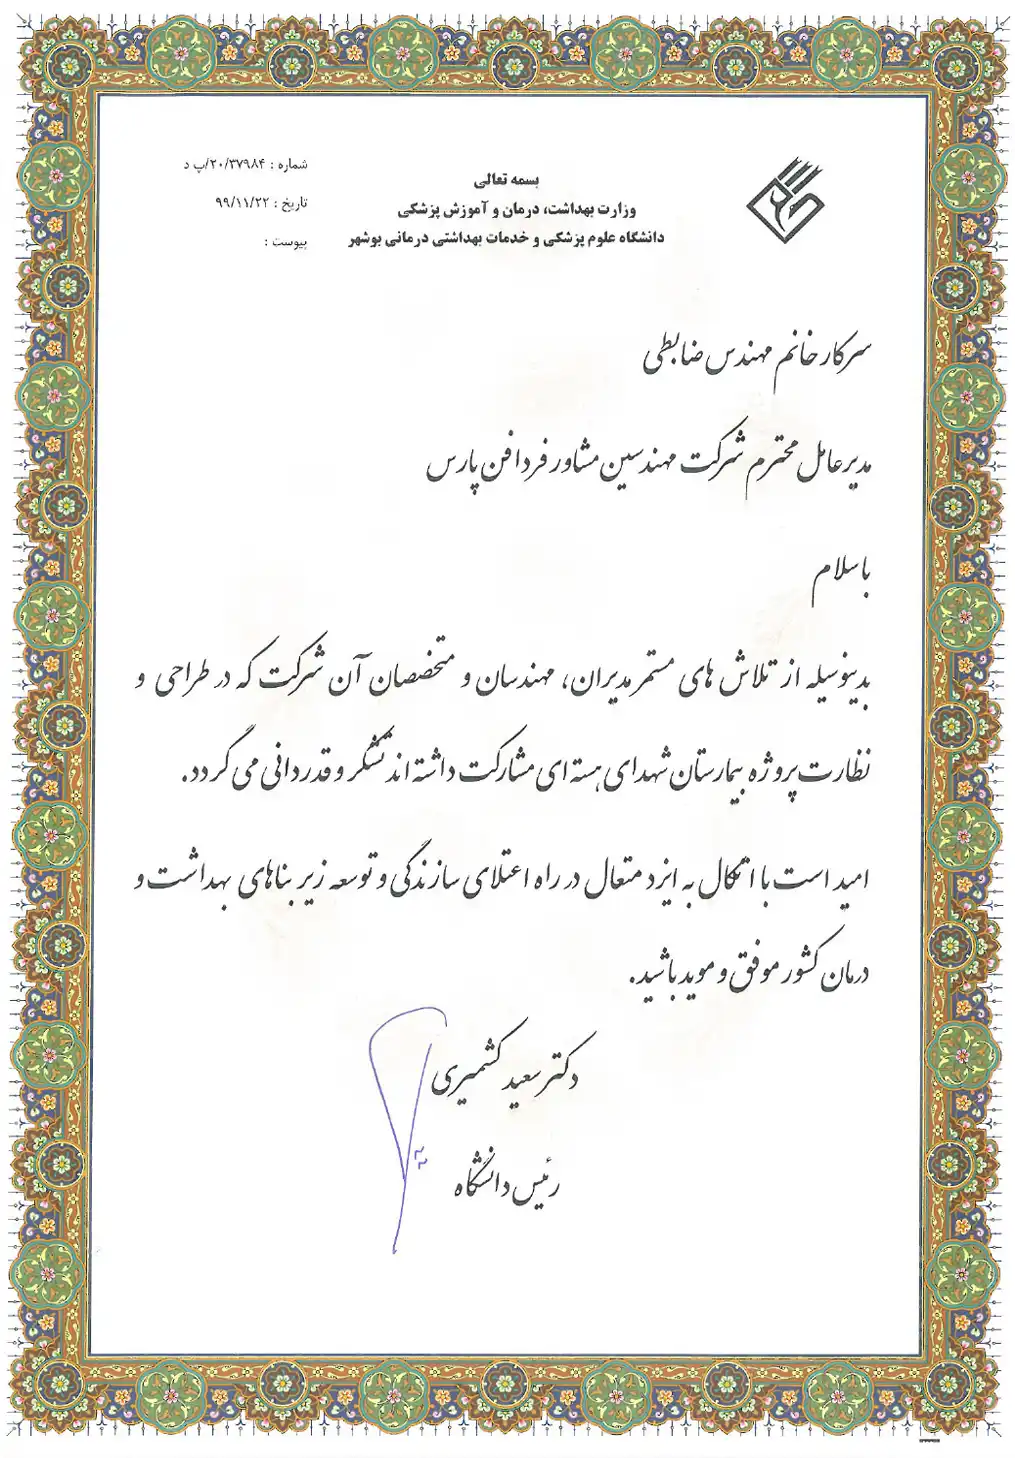 بسمه تعالی
وزارت بهداشت، درمان و آموزش پزشکی
دانشگاه علوم پزشکی و خدمات بهداشتی درمانی بوشهر
شماره : ۲۰/۳۷۹۸۴/پ د
تاریخ : ۹۹/۱۱/۲۲
پیوست :
سرکار خانم مهندس ضابطی
مدیرعامل محترم شرکت مهندسین مشاور فردا فن پارس
با سلام
بدینوسیله از تلاش های مستمر مدیران، مهندسان و متخصصان آن شرکت که در طراحی و
نظارت پروژه بیمارستان شهدای هسته ای مشارکت داشته اند تشکر و قدردانی می گردد.
امید است با اتکال به ایزد متعال در راه اعتلای سازندگی و توسعه زیر بناهای بهداشت و
درمان کشور موفق و موید باشید.
دکتر سعید کشمیری
رئیس دانشگاه